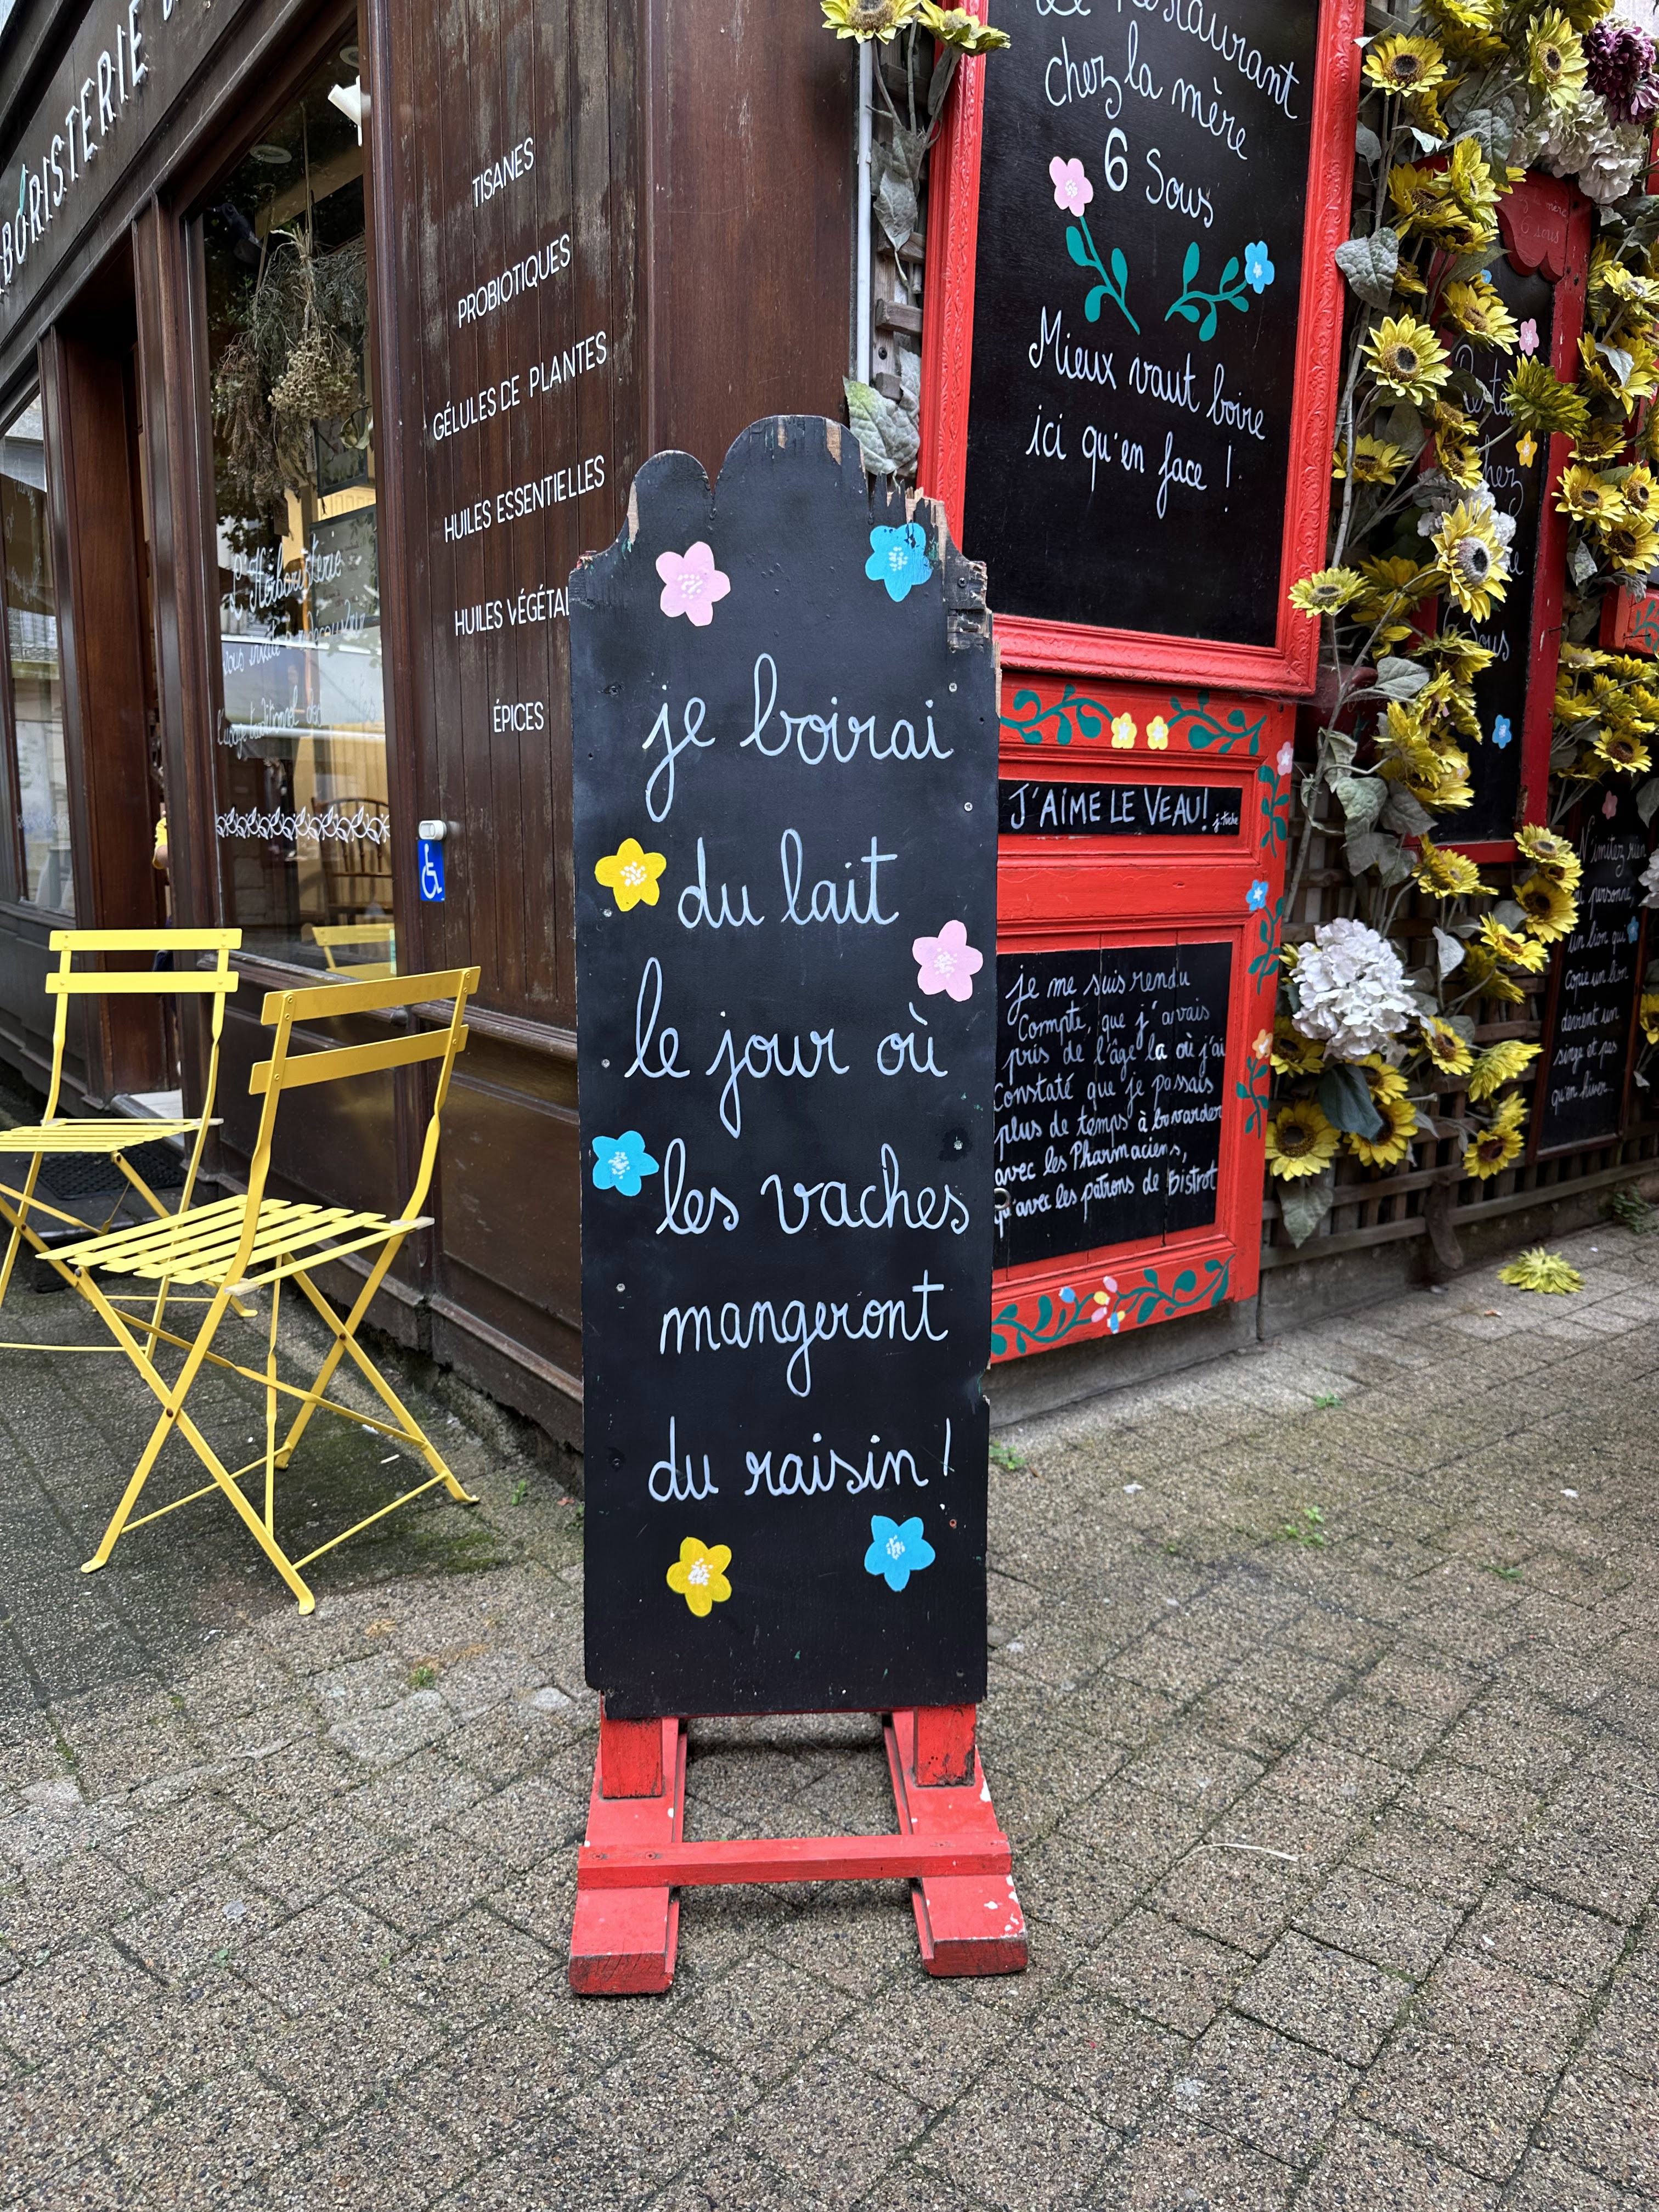 TISANES
PROBIOTIQUES
GÉLULES DE PLANTES
HUILES ESSENTIELLES
HUILES VÉGÉTAL
ÉPICES
l'Herboristerie
vous invite
Restaurant
chez la mère
6 Sous
Mieux vaut boire
ici qu'en face !
je boirai
du lait
le jour où
les vaches
mangeront
du raisin !
J'AIME LE VEAU!
je me suis rendu
Compte, que j'avais
pris de l'âge la où j'ai
Constaté que je passais
plus de temps à bavarder
avec les Pharmaciens,
qu'avec les patrons de Bistrot
N'imitez rien
personne,
un lion qui
copie un lion
devient un
singe et pas
qu'en hiver